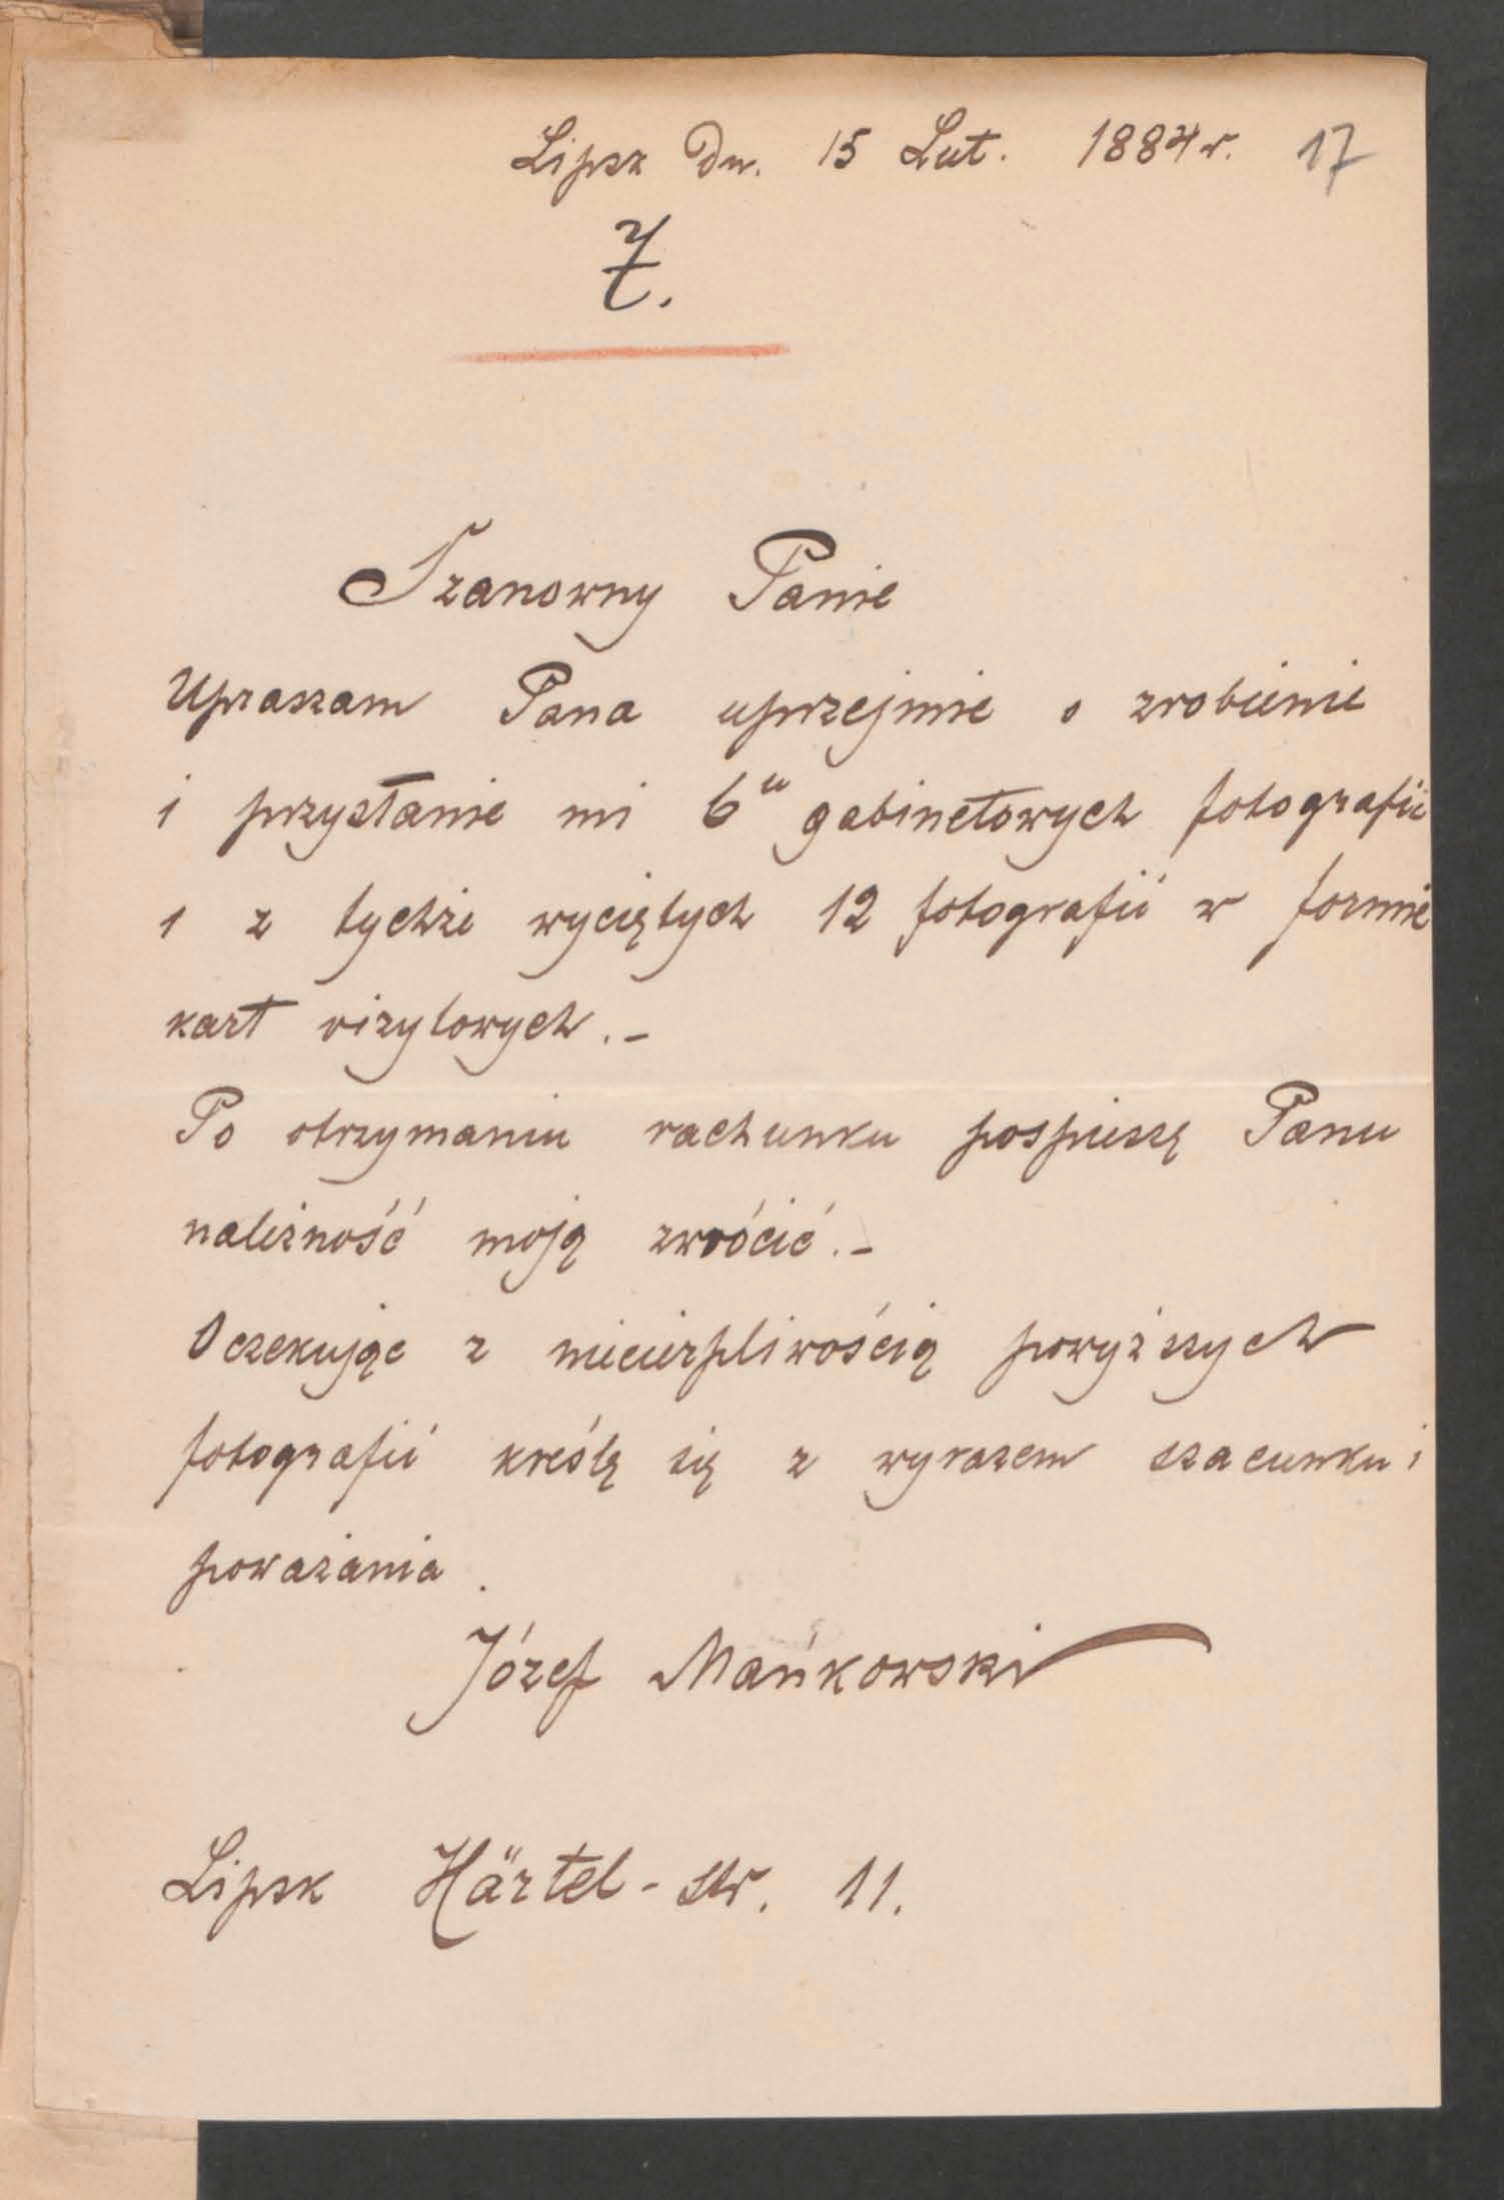 Lipsk Dn. 15 Lut. 1884 r. 17
7.
Szanowny Panie
Upraszam Pana uprzejmie o zrobienie
i przysłanie mi 6u gabinetowych fotografii
i z tychże wyciętych 12 fotografii w formie
kart vizytowych.-
Po otrzymaniu rachunku pospieszę Panu
należność moją zwrócić.-
Oczekując z niecierpliwością powyższych
fotografii kreślę się z wyrazem szacunku i
poważania.
Józef Mańkowski
Lipsk Härtel-str. 11.